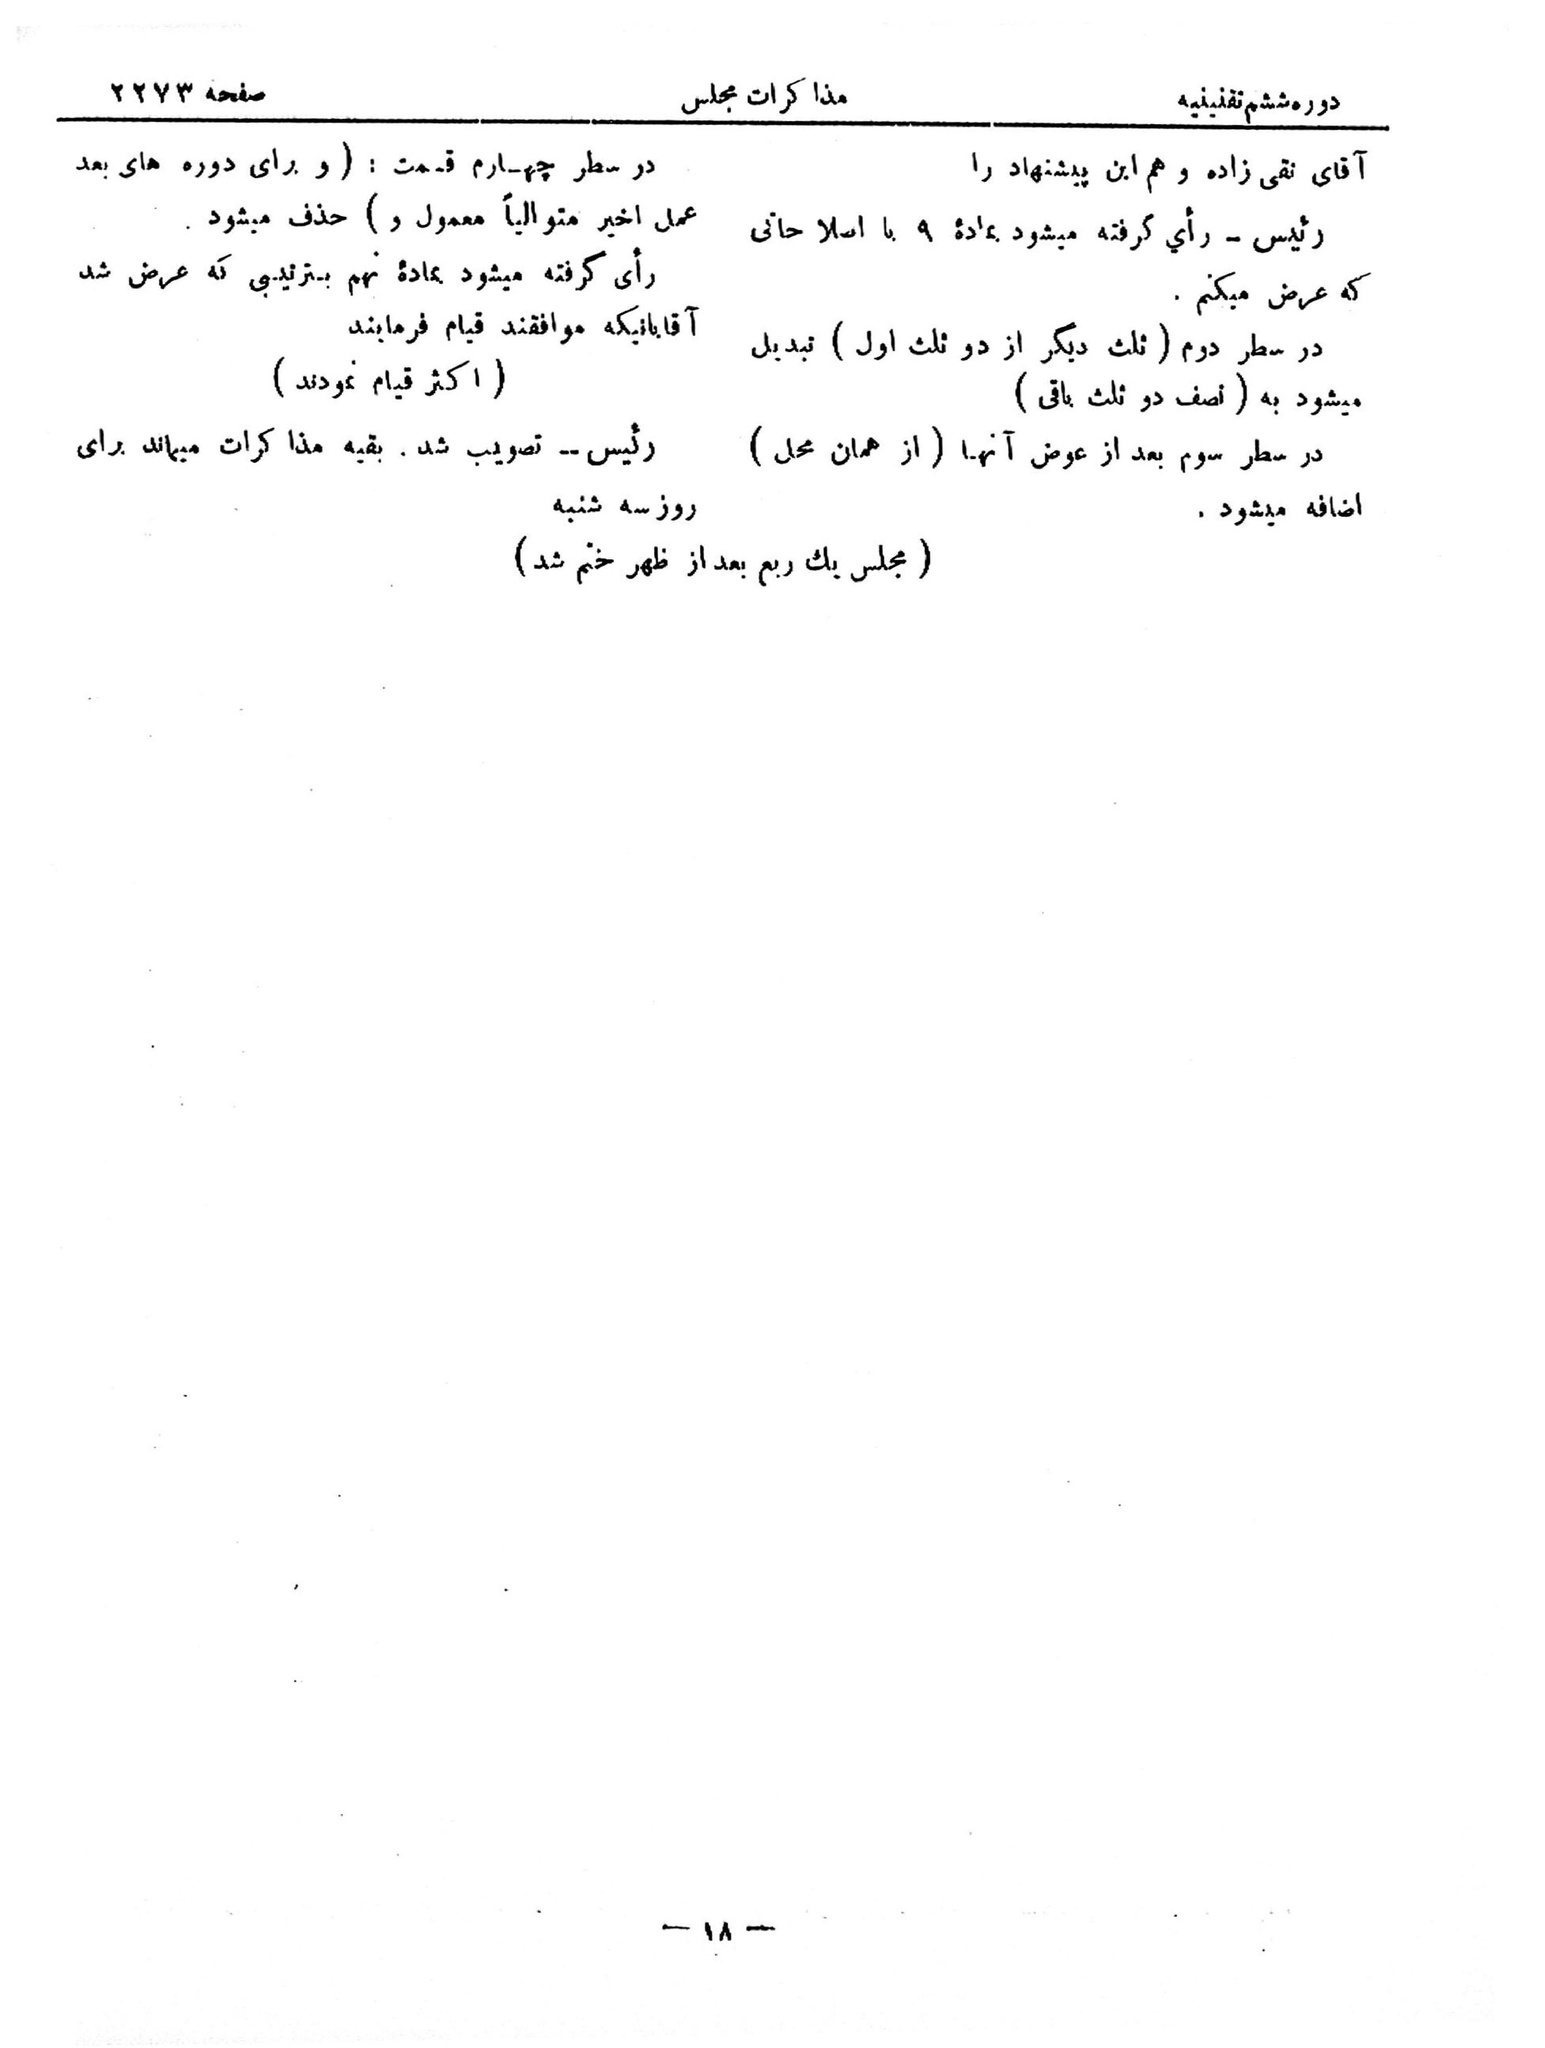 دوره ششم تقنینیه
مذاکرات مجلس
صفحه ۲۲۷۳
آقای تقی زاده و هم این پیشنهاد را
رئیس ـ رأي گرفته میشود بمادهٔ ۹ با اصلاحاتی
که عرض میکنم .
در سطر دوم ( ثلث دیگر از دو ثلث اول ) تبدیل
میشود به ( نصف دو ثلث باقی )
در سطر سوم بعد از عوض آنها ( از همان محل )
اضافه میشود .
در سطر چهارم قسمت : ( و برای دوره های بعد
عمل اخیر متوالیاً معمول و ) حذف میشود .
رأی گرفته میشود بمادهٔ نهم بترتیبی که عرض شد
آقایانیکه موافقند قیام فرمایند
( اکثر قیام نمودند )
رئیس ــ تصویب شد . بقیه مذاکرات میماند برای
روز سه شنبه
( مجلس یك ربع بعد از ظهر ختم شد )
— ۱۸ —